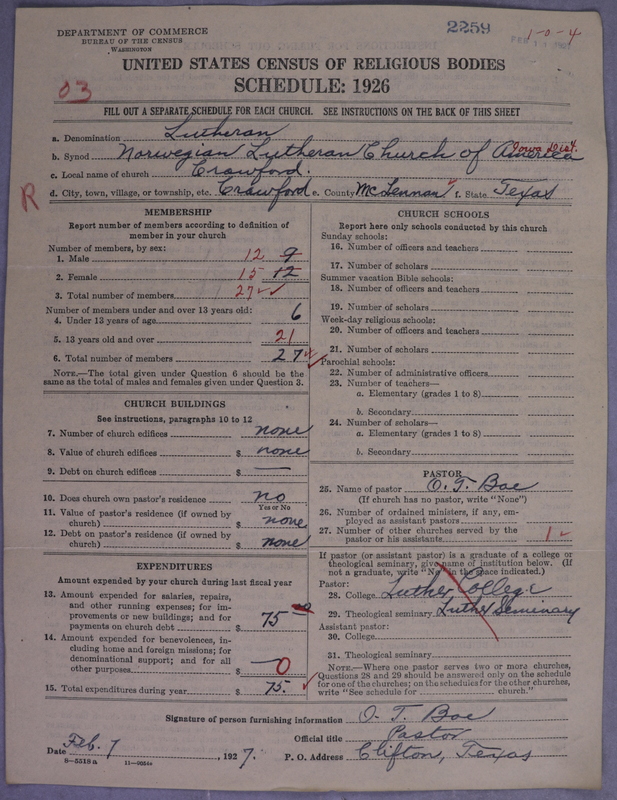 DEPARTMENT OF COMMERCE
BUREAU OF THE CENSUS
WASHINGTON
2259
1-0-4
UNITED STATES CENSUS OF RELIGIOUS BODIES
SCHEDULE: 1926
03
FILL OUT A SEPARATE SCHEDULE FOR EACH CHURCH. SEE INSTRUCTIONS ON THE BACK OF THIS SHEET
a. Denomination Lutheran
b. Synod Norwegian Lutheran Church of America Iowa Dist.
c. Local name of church Crawford.
R
d. City, town, village, or township, etc. Crawford e. County McLennan f. State Texas
MEMBERSHIP
Report number of members according to definition of
member in your church
Number of members, by sex:
1. Male 12 9
2. Female 15 12
3. Total number of members 27
Number of members under and over 13 years old:
4. Under 13 years of age 6
5. 13 years old and over 21
6. Total number of members 27
NOTE.—The total given under Question 6 should be the
same as the total of males and females given under Question 3.
CHURCH BUILDINGS
See instructions, paragraphs 10 to 12
7. Number of church edifices none
8. Value of church edifices $ none
9. Debt on church edifices $ —
10. Does church own pastor's residence no
Yes or No
11. Value of pastor's residence (if owned by
church) $ none
12. Debt on pastor's residence (if owned by
church) $ none
EXPENDITURES
Amount expended by your church during last fiscal year
13. Amount expended for salaries, repairs,
and other running expenses; for im-
provements or new buildings; and for
payments on church debt $ 75
14. Amount expended for benevolences, in-
cluding home and foreign missions; for
denominational support; and for all
other purposes $ 0
15. Total expenditures during year $ 75.
CHURCH SCHOOLS
Report here only schools conducted by this church
Sunday schools:
16. Number of officers and teachers
17. Number of scholars
Summer vacation Bible schools:
18. Number of officers and teachers
19. Number of scholars
Week-day religious schools:
20. Number of officers and teachers
21. Number of scholars
Parochial schools:
22. Number of administrative officers
23. Number of teachers—
a. Elementary (grades 1 to 8)
b. Secondary
24. Number of scholars—
a. Elementary (grades 1 to 8)
b. Secondary
PASTOR
25. Name of pastor O. T. Boe
(If church has no pastor, write "None")
26. Number of ordained ministers, if any, em-
ployed as assistant pastors
27. Number of other churches served by the
pastor or his assistants 1
If pastor (or assistant pastor) is a graduate of a college or
theological seminary, give name of institution below. (If
not a graduate, write "No" in the space indicated.)
Pastor:
28. College Luther College
29. Theological seminary Luther Seminary
Assistant pastor:
30. College
31. Theological seminary
NOTE.—Where one pastor serves two or more churches,
Questions 28 and 29 should be answered only on the schedule
for one of the churches; on the schedules for the other churches,
write "See schedule for church."
Signature of person furnishing information O. T. Boe
Official title Pastor
Date Feb. 7, 1927. P. O. Address Clifton, Texas
8—5518a 11—9054